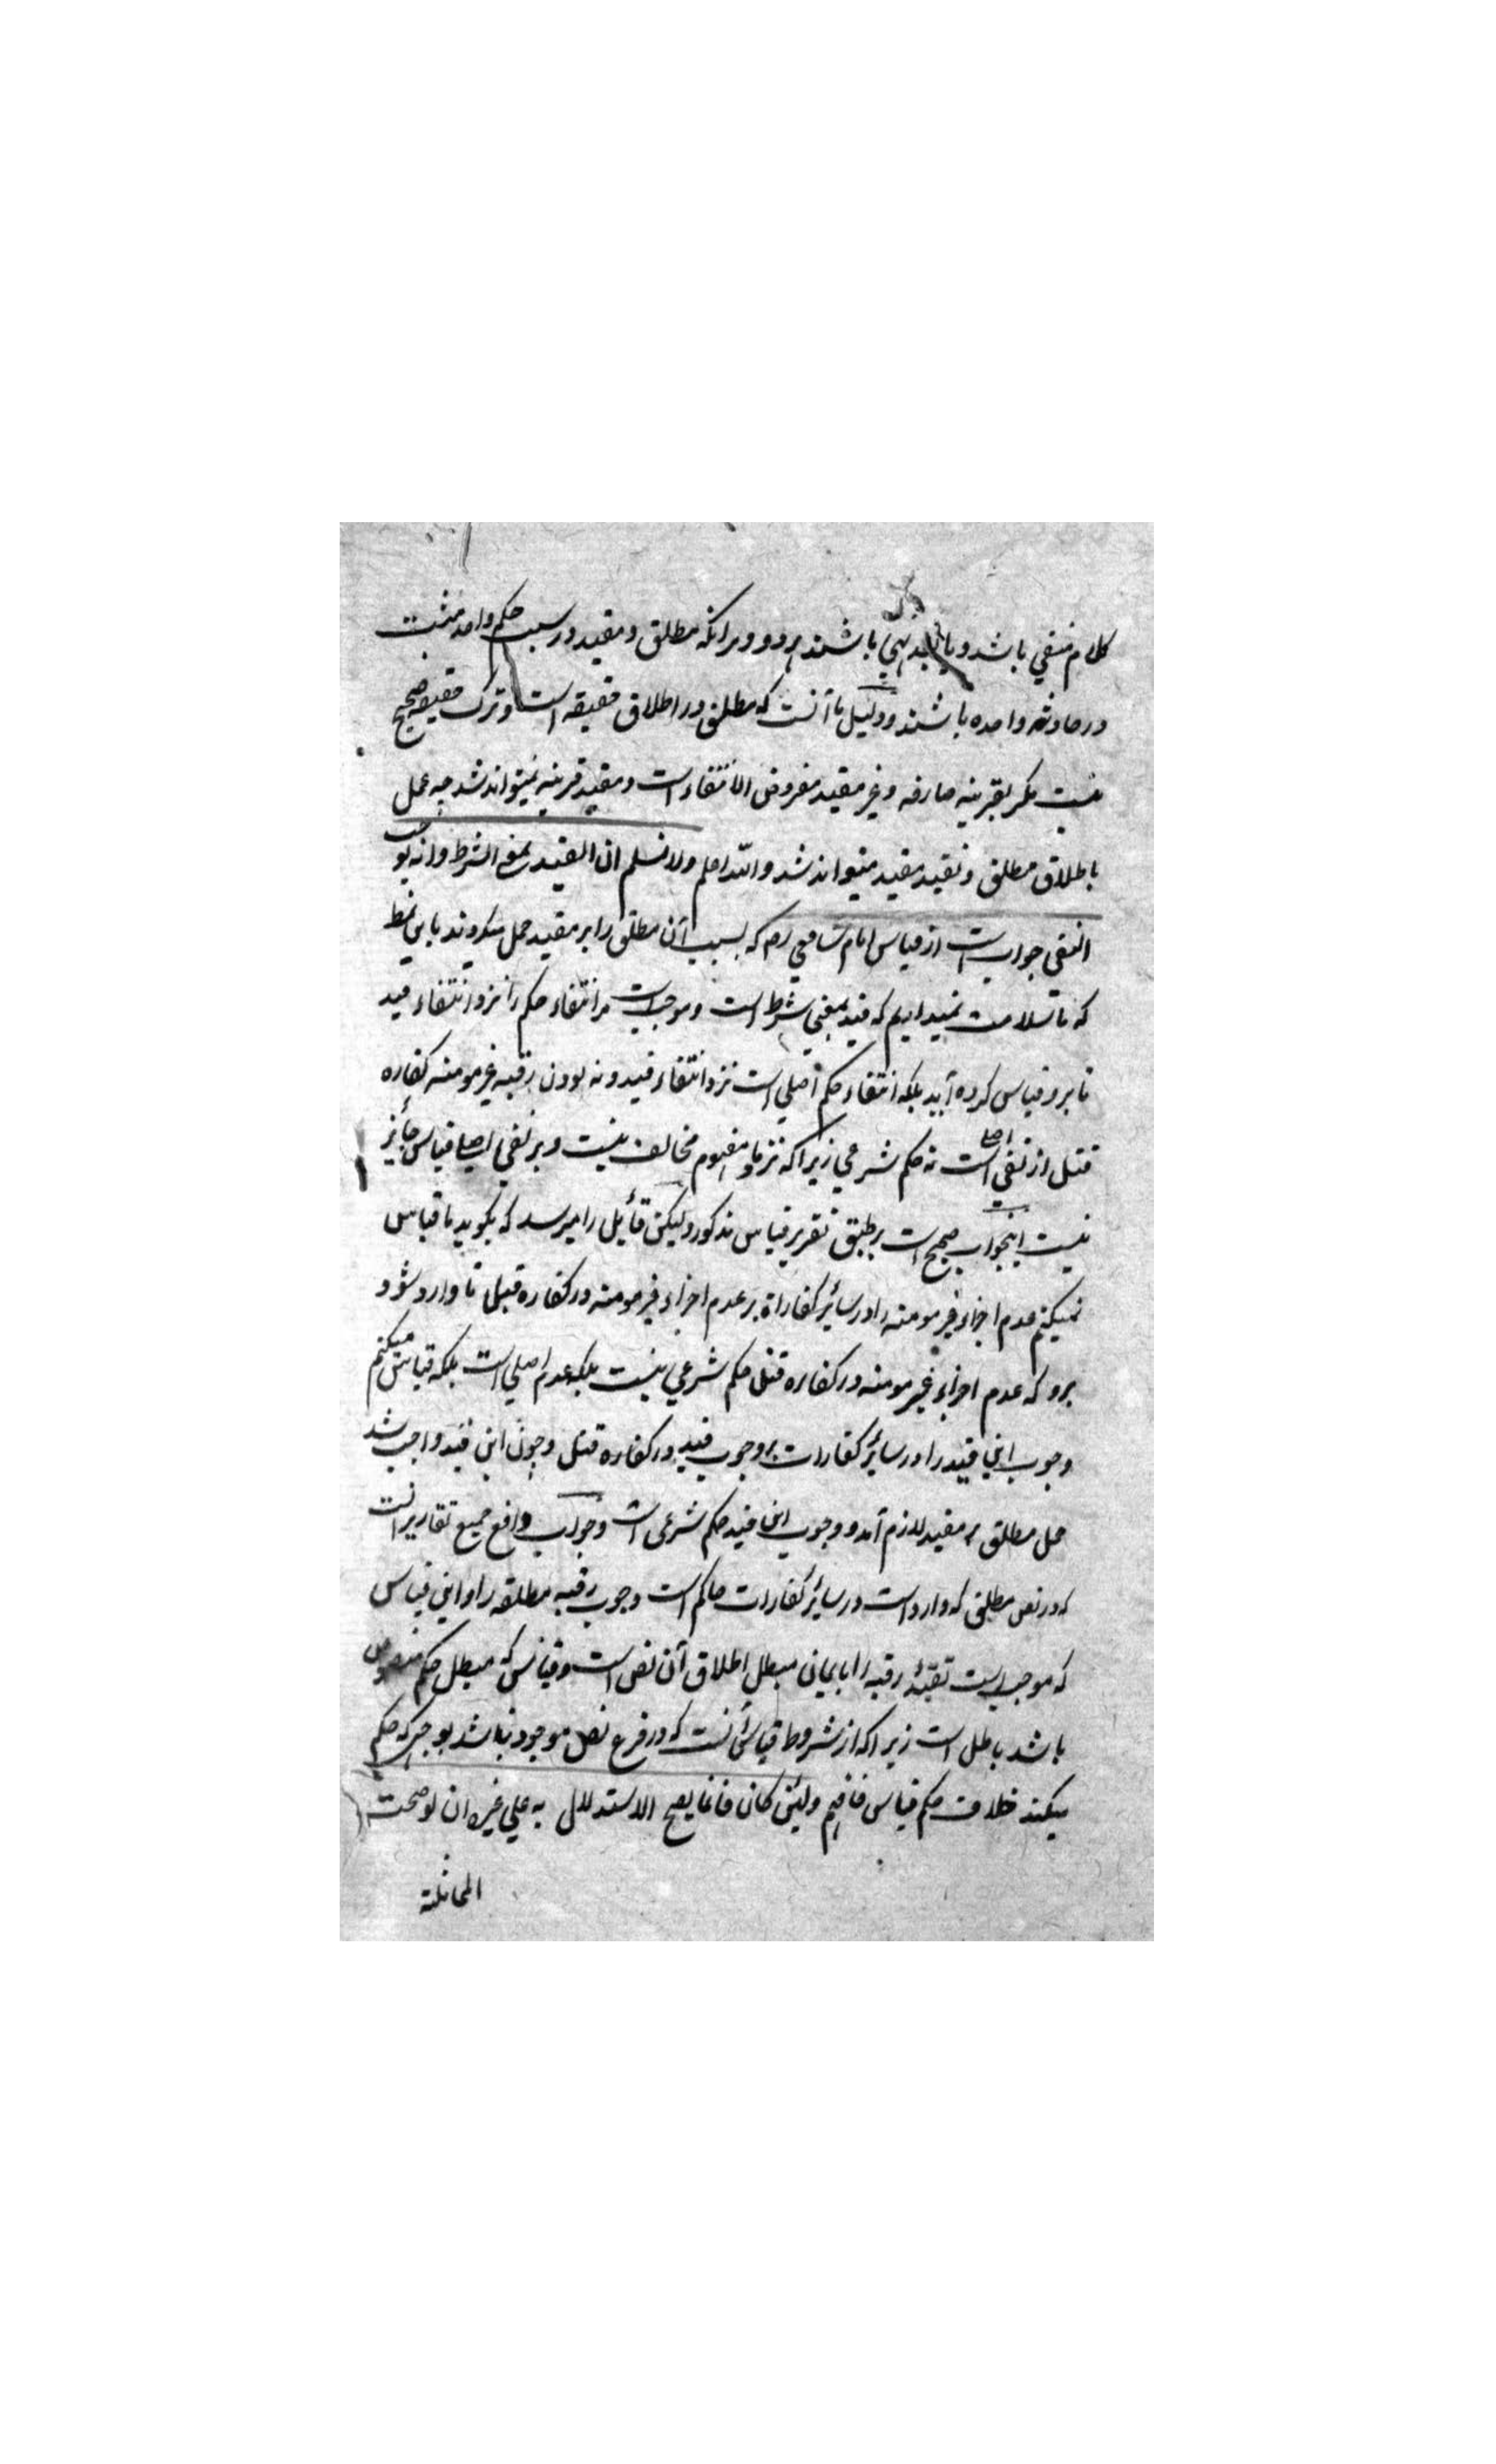 کلام منفي باشد و یا نهي باشند هر دو و برانکه مطلق و مقید در سبب حکم واحد مثبت
در حادثه واحده باشند و دلیل ما آنست که مطلق در اطلاق حقیقه است و ترک حقیقه صحیح
نیست مکر بقرینه صارفه و غیر مقید مفروض الانتفاء است و مقید قرینه نمیتواند شد چه عمل
باطلاق مطلق و تقید مقید میتواند شد والله اعلم ولا نسلم ان القید بمعنی الشرط وانه یوجب
النفی جواب است از قیاس امام شافعي رح که بسبب آن مطلق را بر مقید حمل میکردند باین نمط
که ما تسلامت نمیداریم که قید بمعني شرط است و موجب است مر انتفاء حکم را نزد انتفاء قید
تا برو قیاس کرده آید بلکه انتفاء حکم اصلي است نزد انتفاء قید و نه بودن رقبه غیر مومنه کفاره
قتل از نفي اصلي است نه حکم شرعي زیراکه نزد ما مفهوم مخالف نیست و بر نفي اصلي قیاس جائز
نیست اینجواب صحیح است بر طبق تقریر قیاس مذکور ولیکن قائل را میرسد که بکوید ما قیاس
نمیکنیم عدم اجزاء غیر مومنه را در سائر کفاراة بر عدم اجزاء غیر مومنه در کفاره قتل تا وارد شود
برو که عدم اجزاء غیر مومنه در کفاره قتل حکم شرعي نیست بلکه عدم اصلي است بلکه قیاس میکنیم
وجوب این قید را در سائر کفارات بر وجوب قید در کفاره قتل و چون این قید واجب شد
حمل مطلق بر مقید لازم آمد و وجوب این قید حکم شرعی است و جواب دافع جمیع تقاریر انست
که در نص مطلق که وارد است در سائر کفارات حاکم است وجوب رقبه مطلقه را و این قیاس
که موجب است تقیید رقبه را بایمان مبطل اطلاق آن نص است و قیاس که مبطل حکم منصوص
باشد باطل است زیراکه از شروط قیاس آنست که در فرع نص موجود نباشد بوجهي که حکم
میکند خلاف حکم قیاس فافهم ولئن کان فانما یصح الاستدلال به علي غیره ان لو صحت
المماثلة